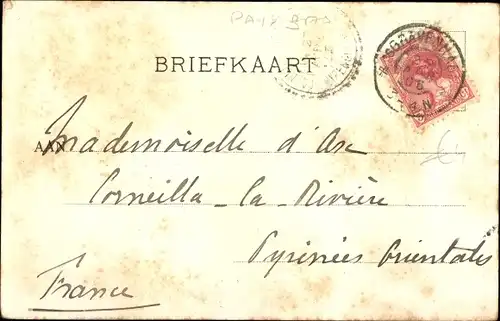 PAYX BAS
BRIEFKAART
AAN
Mademoiselle d'Ax
Corneilla-la-Rivière
Pyrénées Orientales
France